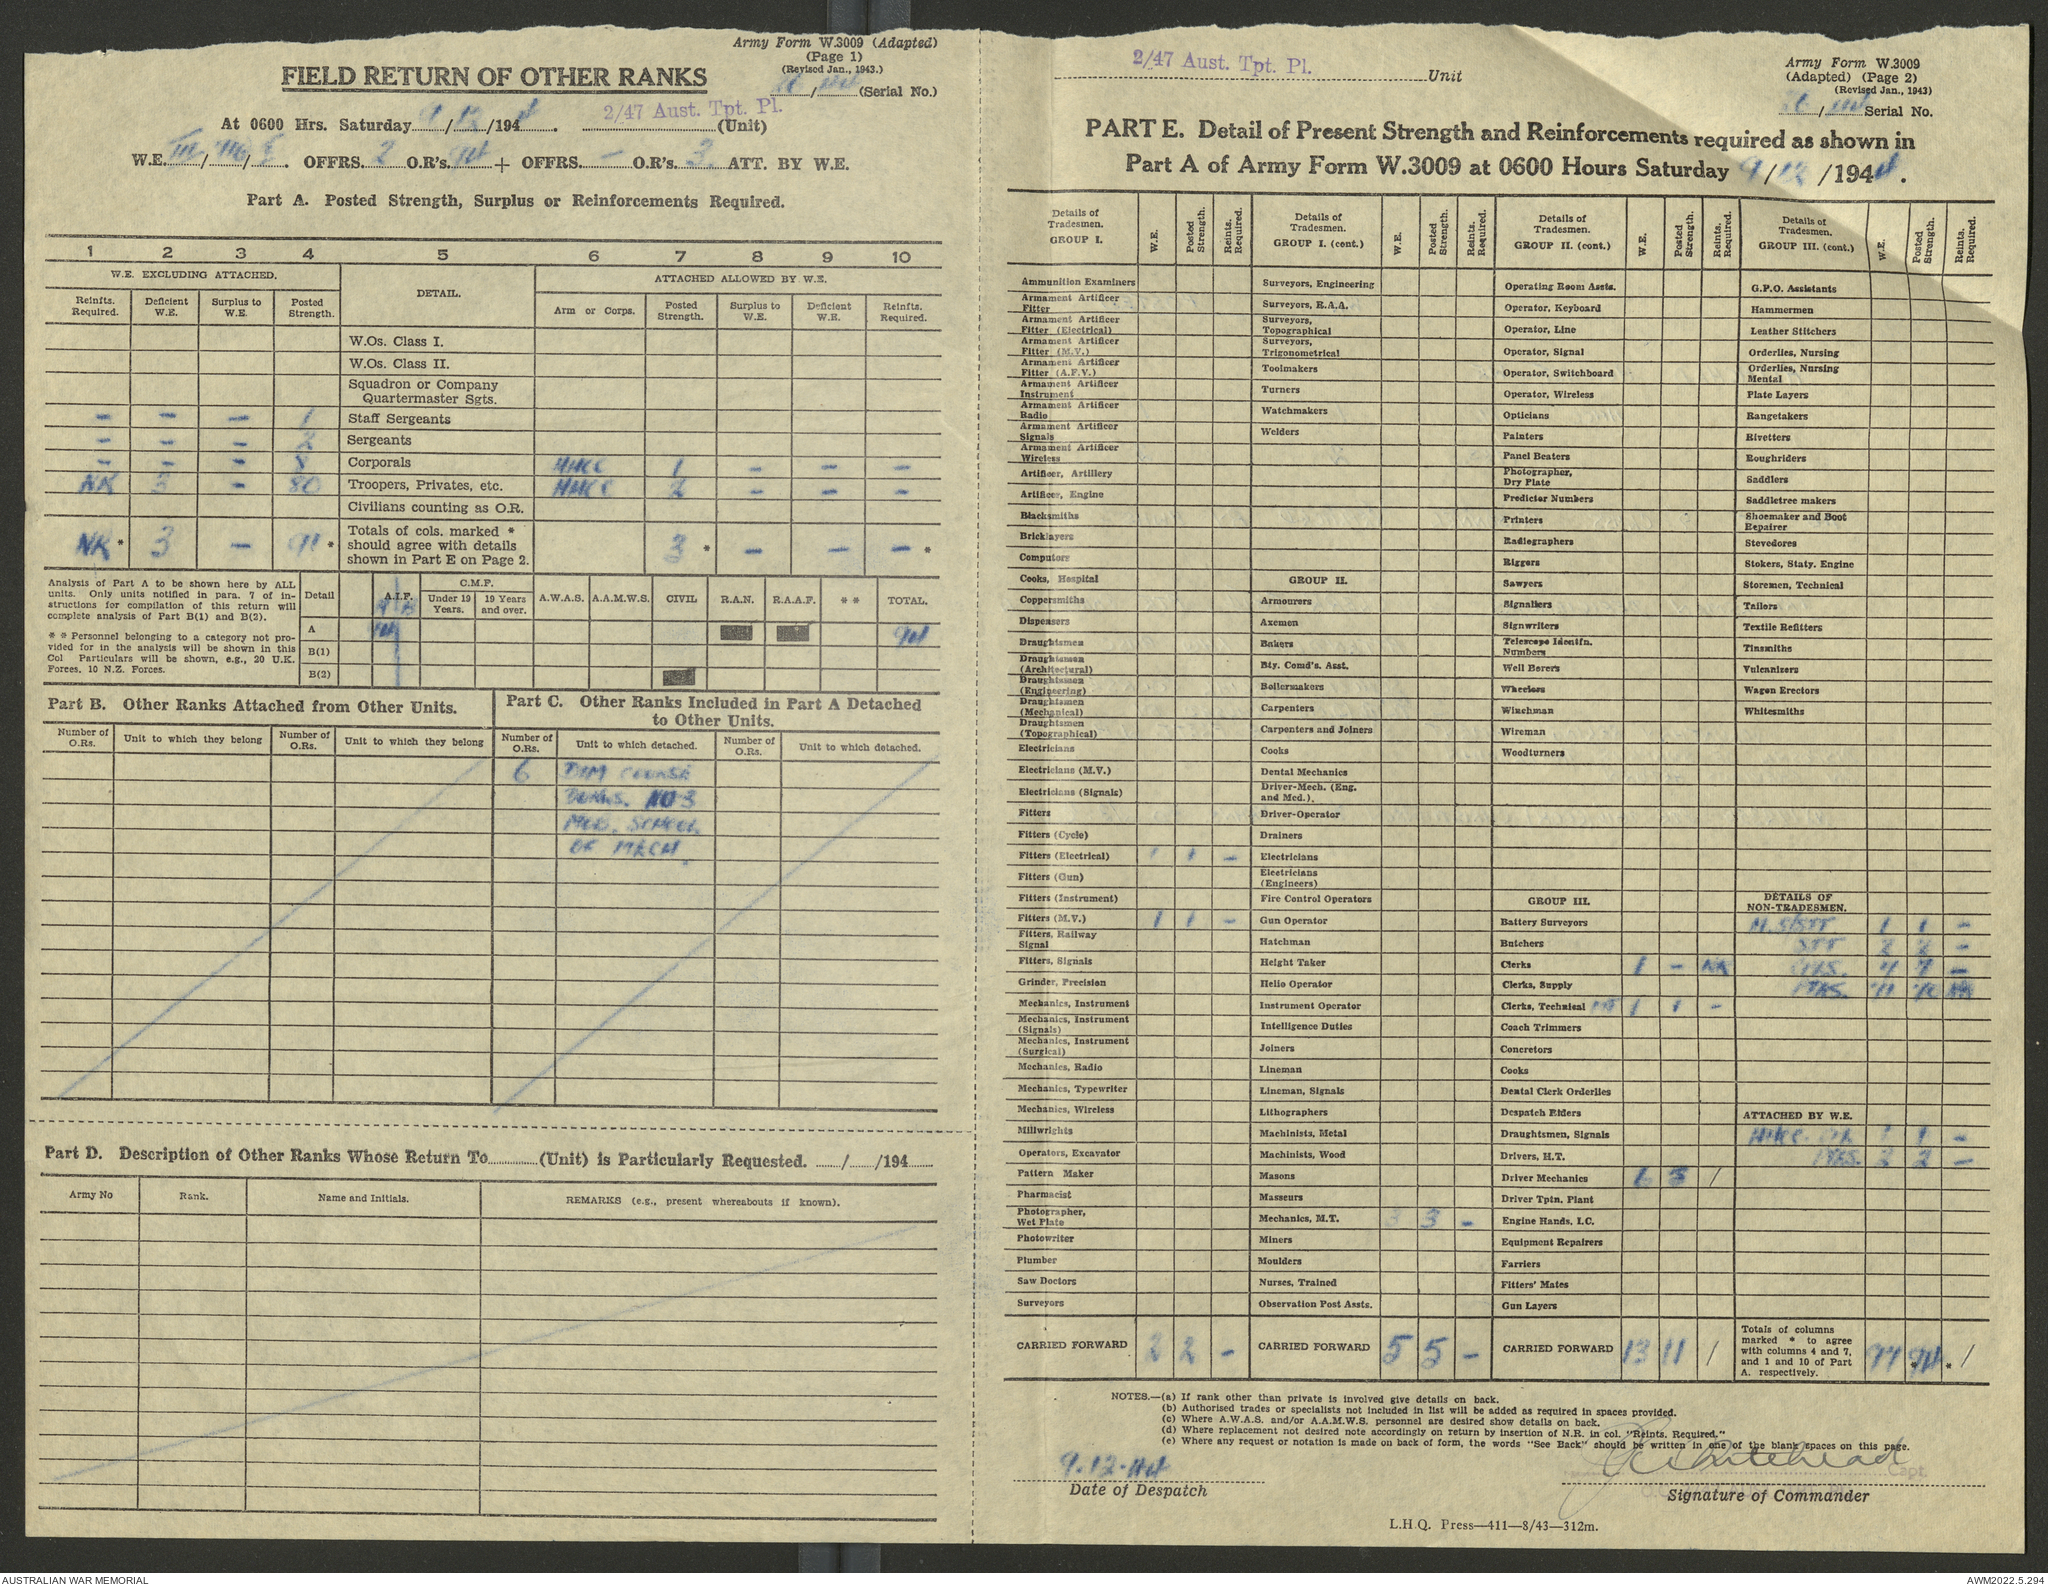 Army Form W.3009 (Adapted)
(Page 1)
(Revised Jan., 1943.)
FIELD RETURN OF OTHER RANKS
/ (Serial No.)
At 0600 Hrs. Saturday 9/12/1944. 2/47 Aust. Tpt. Pl. (Unit)
W.E. III/ / . OFFRS. 2 O.R's. 94 + OFFRS. — O.R's. 3 ATT. BY W.E.
Part A. Posted Strength, Surplus or Reinforcements Required.
1 2 3 4 5 6 7 8 9 10
W.E. EXCLUDING ATTACHED. DETAIL. ATTACHED ALLOWED BY W.E.
Reinfts. Required. Deficient W.E. Surplus to W.E. Posted Strength. Arm or Corps. Posted Strength. Surplus to W.E. Deficient W.E. Reinfts. Required.
W.Os. Class I.
W.Os. Class II.
Squadron or Company Quartermaster Sgts.
– – – 1 Staff Sergeants
– – – 2 Sergeants
– – – 8 Corporals 1 – – –
NR 3 – 80 Troopers, Privates, etc. 2 – – –
Civilians counting as O.R.
NR * 3 – 91 * Totals of cols. marked * should agree with details shown in Part E on Page 2. 3 * – – – *
Analysis of Part A to be shown here by ALL units. Only units notified in para. 7 of instructions for compilation of this return will complete analysis of Part B(1) and B(2).
* * Personnel belonging to a category not provided for in the analysis will be shown in this Col Particulars will be shown, e.g., 20 U.K. Forces. 10 N.Z. Forces.
Detail A.I.F. C.M.F. Under 19 Years. 19 Years and over. A.W.A.S. A.A.M.W.S. CIVIL R.A.N. R.A.A.F. * * TOTAL.
A 94 94
B(1)
B(2)
Part B. Other Ranks Attached from Other Units.
Number of O.Rs. Unit to which they belong Number of O.Rs. Unit to which they belong
Part C. Other Ranks Included in Part A Detached to Other Units.
Number of O.Rs. Unit to which detached. Number of O.Rs. Unit to which detached.
6 D/M COURSE
NO 3
SCHOOL
OF MECH.
Part D. Description of Other Ranks Whose Return To (Unit) is Particularly Requested. / /194
Army No Rank. Name and Initials. REMARKS (e.g., present whereabouts if known).
2/47 Aust. Tpt. Pl. Unit
Army Form W.3009
(Adapted) (Page 2)
(Revised Jan., 1943)
/ Serial No.
PART E. Detail of Present Strength and Reinforcements required as shown in
Part A of Army Form W.3009 at 0600 Hours Saturday 9/12/1944.
Details of Tradesmen. GROUP I. W.E. Posted Strength. Reints. Required.
Ammunition Examiners
Armament Artificer Fitter
Armament Artificer Fitter (Electrical)
Armament Artificer Fitter (M.V.)
Armament Artificer Fitter (A.F.V.)
Armament Artificer Instrument
Armament Artificer Radio
Armament Artificer Signals
Armament Artificer Wireless
Artificer, Artillery
Artificer, Engine
Blacksmiths
Bricklayers
Computors
Cooks, Hospital
Coppersmiths
Dispensers
Draughtsmen
Draughtsmen (Architectural)
Draughtsmen (Engineering)
Draughtsmen (Mechanical)
Draughtsmen (Topographical)
Electricians
Electricians (M.V.)
Electricians (Signals)
Fitters
Fitters (Cycle)
Fitters (Electrical) 1 1 –
Fitters (Gun)
Fitters (Instrument)
Fitters (M.V.) 1 1 –
Fitters, Railway Signal
Fitters, Signals
Grinder, Precision
Mechanics, Instrument
Mechanics, Instrument (Signals)
Mechanics, Instrument (Surgical)
Mechanics, Radio
Mechanics, Typewriter
Mechanics, Wireless
Millwrights
Operators, Excavator
Pattern Maker
Pharmacist
Photographer, Wet Plate
Photowriter
Plumber
Saw Doctors
Surveyors
CARRIED FORWARD 2 2 –
Details of Tradesmen. GROUP I. (cont.) W.E. Posted Strength. Reints. Required.
Surveyors, Engineering
Surveyors, R.A.A.
Surveyors, Topographical
Surveyors, Trigonometrical
Toolmakers
Turners
Watchmakers
Welders
GROUP II.
Armourers
Axemen
Bakers
Bty. Comd's. Asst.
Boilermakers
Carpenters
Carpenters and Joiners
Cooks
Dental Mechanics
Driver-Mech. (Eng. and Med.).
Driver-Operator
Drainers
Electricians
Electricians (Engineers)
Fire Control Operators
Gun Operator
Hatchman
Height Taker
Helio Operator
Instrument Operator
Intelligence Duties
Joiners
Lineman
Lineman, Signals
Lithographers
Machinists, Metal
Machinists, Wood
Masons
Masseurs
Mechanics, M.T. 3 3 –
Miners
Moulders
Nurses, Trained
Observation Post Assts.
CARRIED FORWARD 5 5 –
Details of Tradesmen. GROUP II. (cont.) W.E. Posted Strength. Reints. Required.
Operating Room Assts.
Operator, Keyboard
Operator, Line
Operator, Signal
Operator, Switchboard
Operator, Wireless
Opticians
Painters
Panel Beaters
Photographer, Dry Plate
Predictor Numbers
Printers
Radiographers
Riggers
Sawyers
Signallers
Signwriters
Telescope Identfn. Numbers
Well Borers
Wheelers
Winchman
Wireman
Woodturners
GROUP III.
Battery Surveyors
Butchers
Clerks 1 – NR
Clerks, Supply
Clerks, Technical 1 1 –
Coach Trimmers
Concretors
Cooks
Dental Clerk Orderlies
Despatch Riders
Draughtsmen, Signals
Drivers, H.T.
Driver Mechanics 6 5 /
Driver Tptn. Plant
Engine Hands, I.C.
Equipment Repairers
Farriers
Fitters' Mates
Gun Layers
CARRIED FORWARD 13 11 /
Details of Tradesmen. GROUP III. (cont.) W.E. Posted Strength. Reints. Required.
G.P.O. Assistants
Hammermen
Leather Stitchers
Orderlies, Nursing
Orderlies, Nursing Mental
Plate Layers
Rangetakers
Rivetters
Roughriders
Saddlers
Saddletree makers
Shoemaker and Boot Repairer
Stevedores
Stokers, Staty. Engine
Storemen, Technical
Tailors
Textile Refitters
Tinsmiths
Vulcanizers
Wagon Erectors
Whitesmiths
DETAILS OF NON-TRADESMEN.
1 1 –
2 2 –
7 7 –
NR
ATTACHED BY W.E.
1 1 –
2 2 –
Totals of columns marked * to agree with columns 4 and 7, and 1 and 10 of Part A. respectively. 97 * 94 * /
NOTES.—(a) If rank other than private is involved give details on back.
(b) Authorised trades or specialists not included in list will be added as required in spaces provided.
(c) Where A.W.A.S. and/or A.A.M.W.S. personnel are desired show details on back.
(d) Where replacement not desired note accordingly on return by insertion of N.R. in col. "Reints. Required."
(e) Where any request or notation is made on back of form, the words "See Back" should be written in one of the blank spaces on this page.
9.12.44
Date of Despatch
Whitehead Capt.
Signature of Commander
L.H.Q. Press—411—8/43—312m.
AUSTRALIAN WAR MEMORIAL
AWM2022.5.294